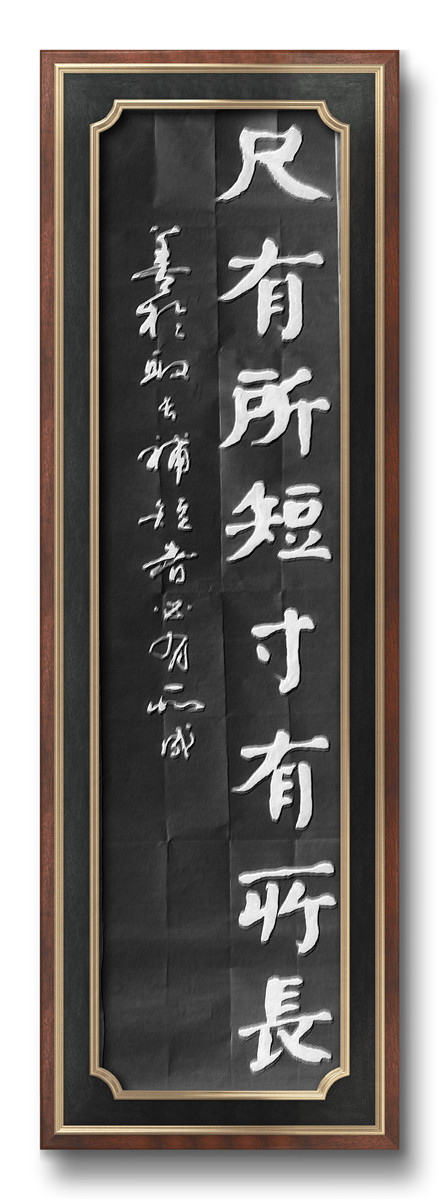 尺有所短寸有所長
善於取長補短者必有所成